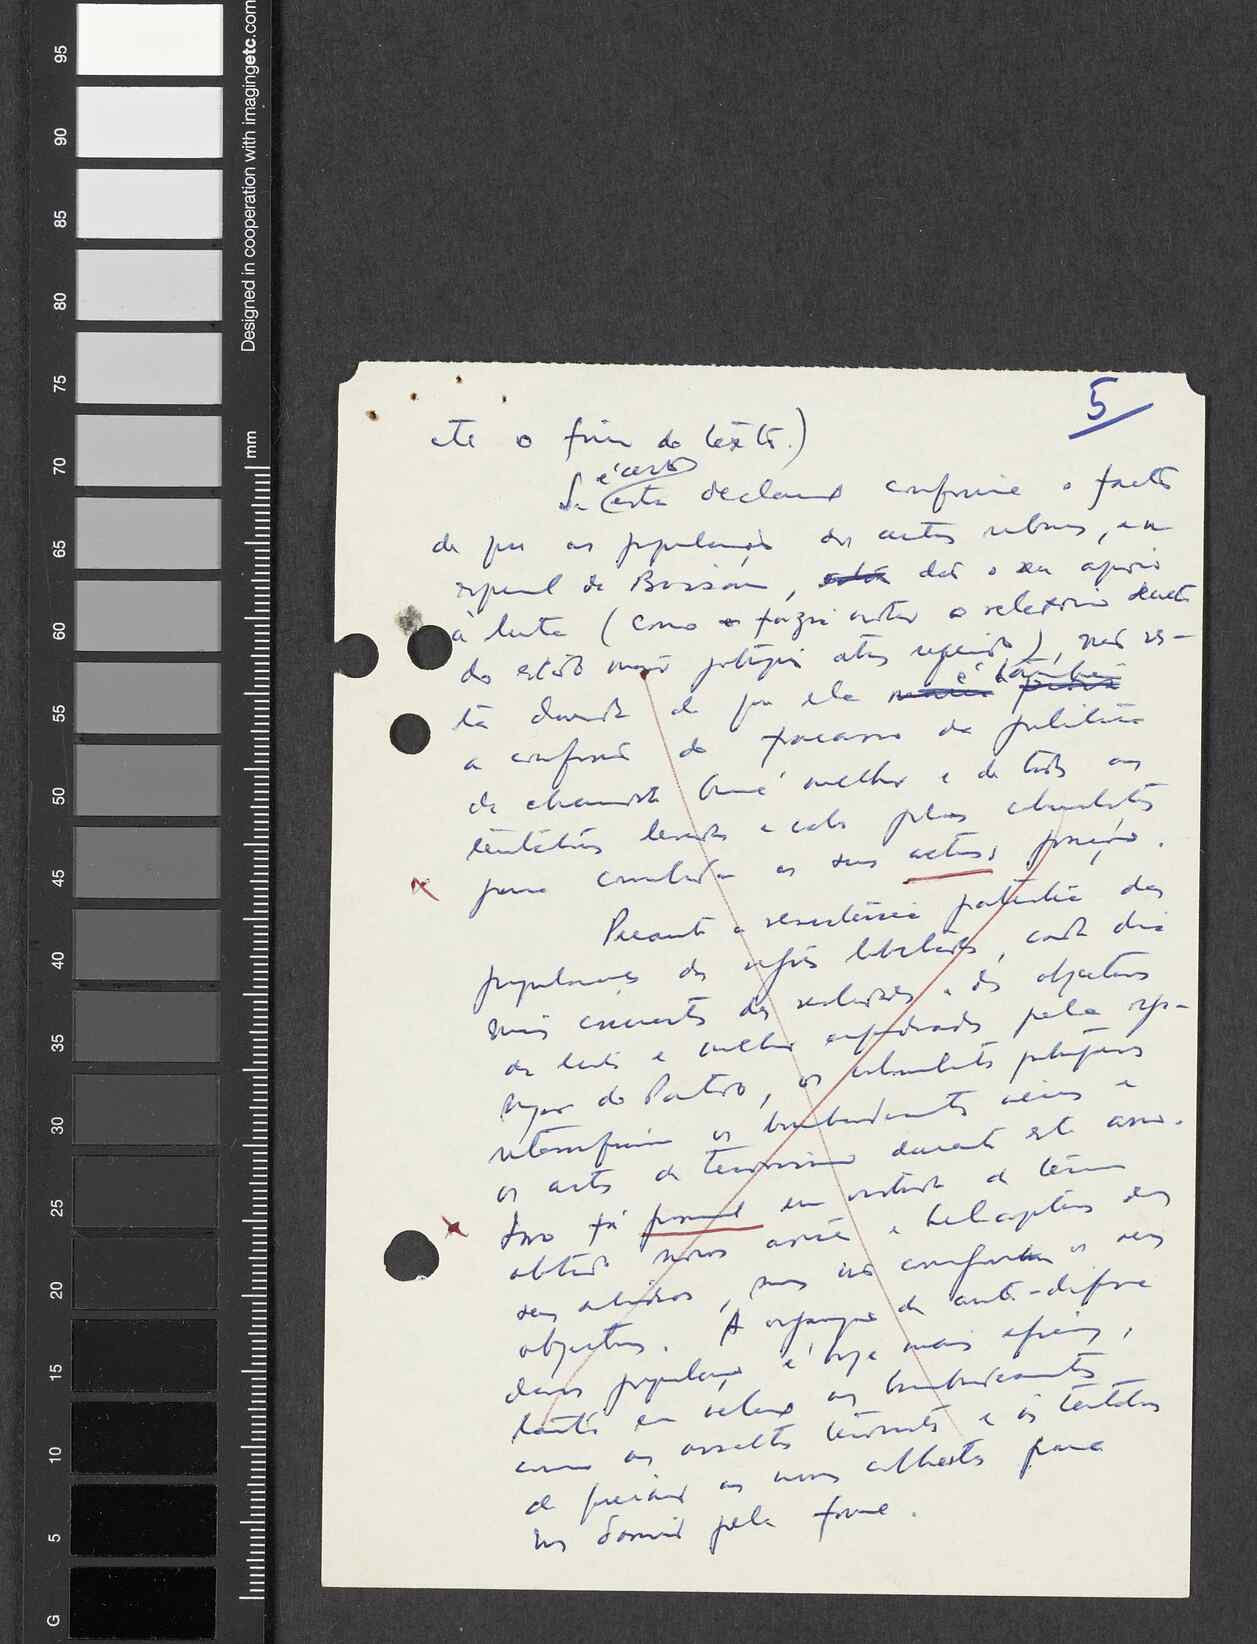 95
90
85
80
75
70
65
60
55
50
45
40
35
30
25
20
15
10
5
G
mm
Designed in cooperation with imagingetc.com
5
até o fim do texto.)
é certo
Se esta declaração confirme o facto
de que as populações dos centros urbanos, em
especial de Bissau, dão o seu apoio
à luta (como o fazia notar o relatório secreto
do estado maior português atrás referido), não res-
é também
ta dúvida de que ela
a confissão do fracasso da política
da chamada Guiné melhor e de todas as
tentativas levadas a cabo pelos colonialistas
para consolidar as suas actuais posições.
Perante a resistência patriótica das
populações das regiões libertadas, cada dia
mais conscientes das realidades e dos objectivos
da luta e melhor enquadradas pela orga-
do Partido, os colonialistas portugueses
intensificaram os bombardeamentos aéreos e
os actos de terrorismo durante este ano.
Isso foi possível em virtude de terem
obtido novos aviões e helicópteros dos
seus aliados, mas não conseguiram os seus
objectivos. A organização da auto-defesa
das populações é hoje mais eficaz,
tanto em relação aos bombardeamentos
como aos assaltos terroristas e às tentativas
de queimar as nossas colheitas para
nos dominar pela fome.